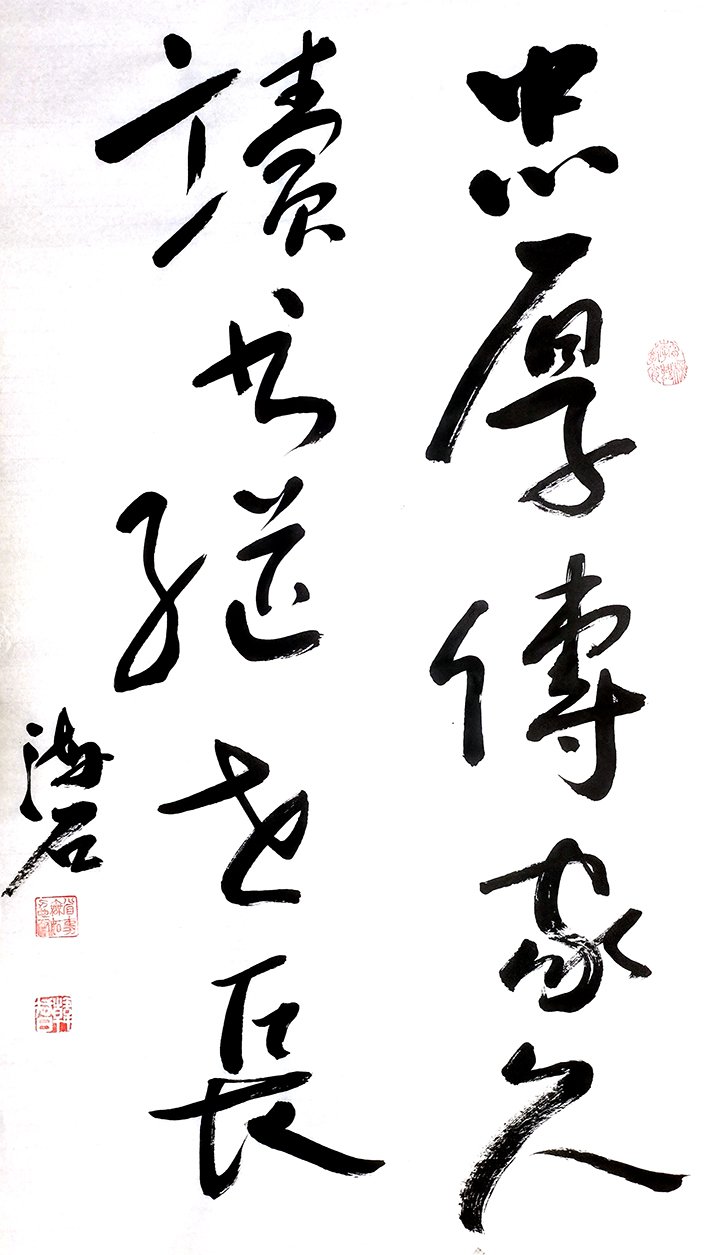 忠厚傳家久
讀書繼世長
海石